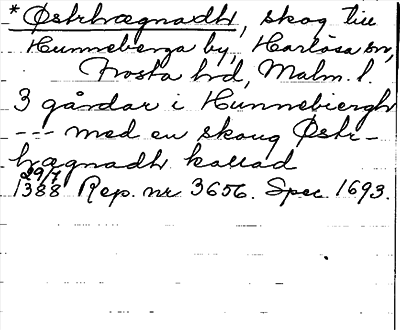 *Østrhrægnadh, skog till
Hunneberga by, Harlösa sn,
Frosta hd, Malm. l.
3 gårdar i Hunnebiergh
--- med en skoug Østr-
hrægnadh kallad
29/7
1388 Rep. nr 3656. Spec. 1693.